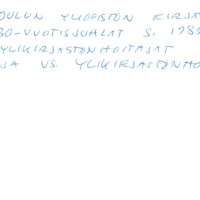 OULUN YLIOPISTON KIRJA
30-VUOTISJUHLAT S. 1989
YLIKIRJASTONHOITAJAT
JA VS. YLIKIRJASTONHO